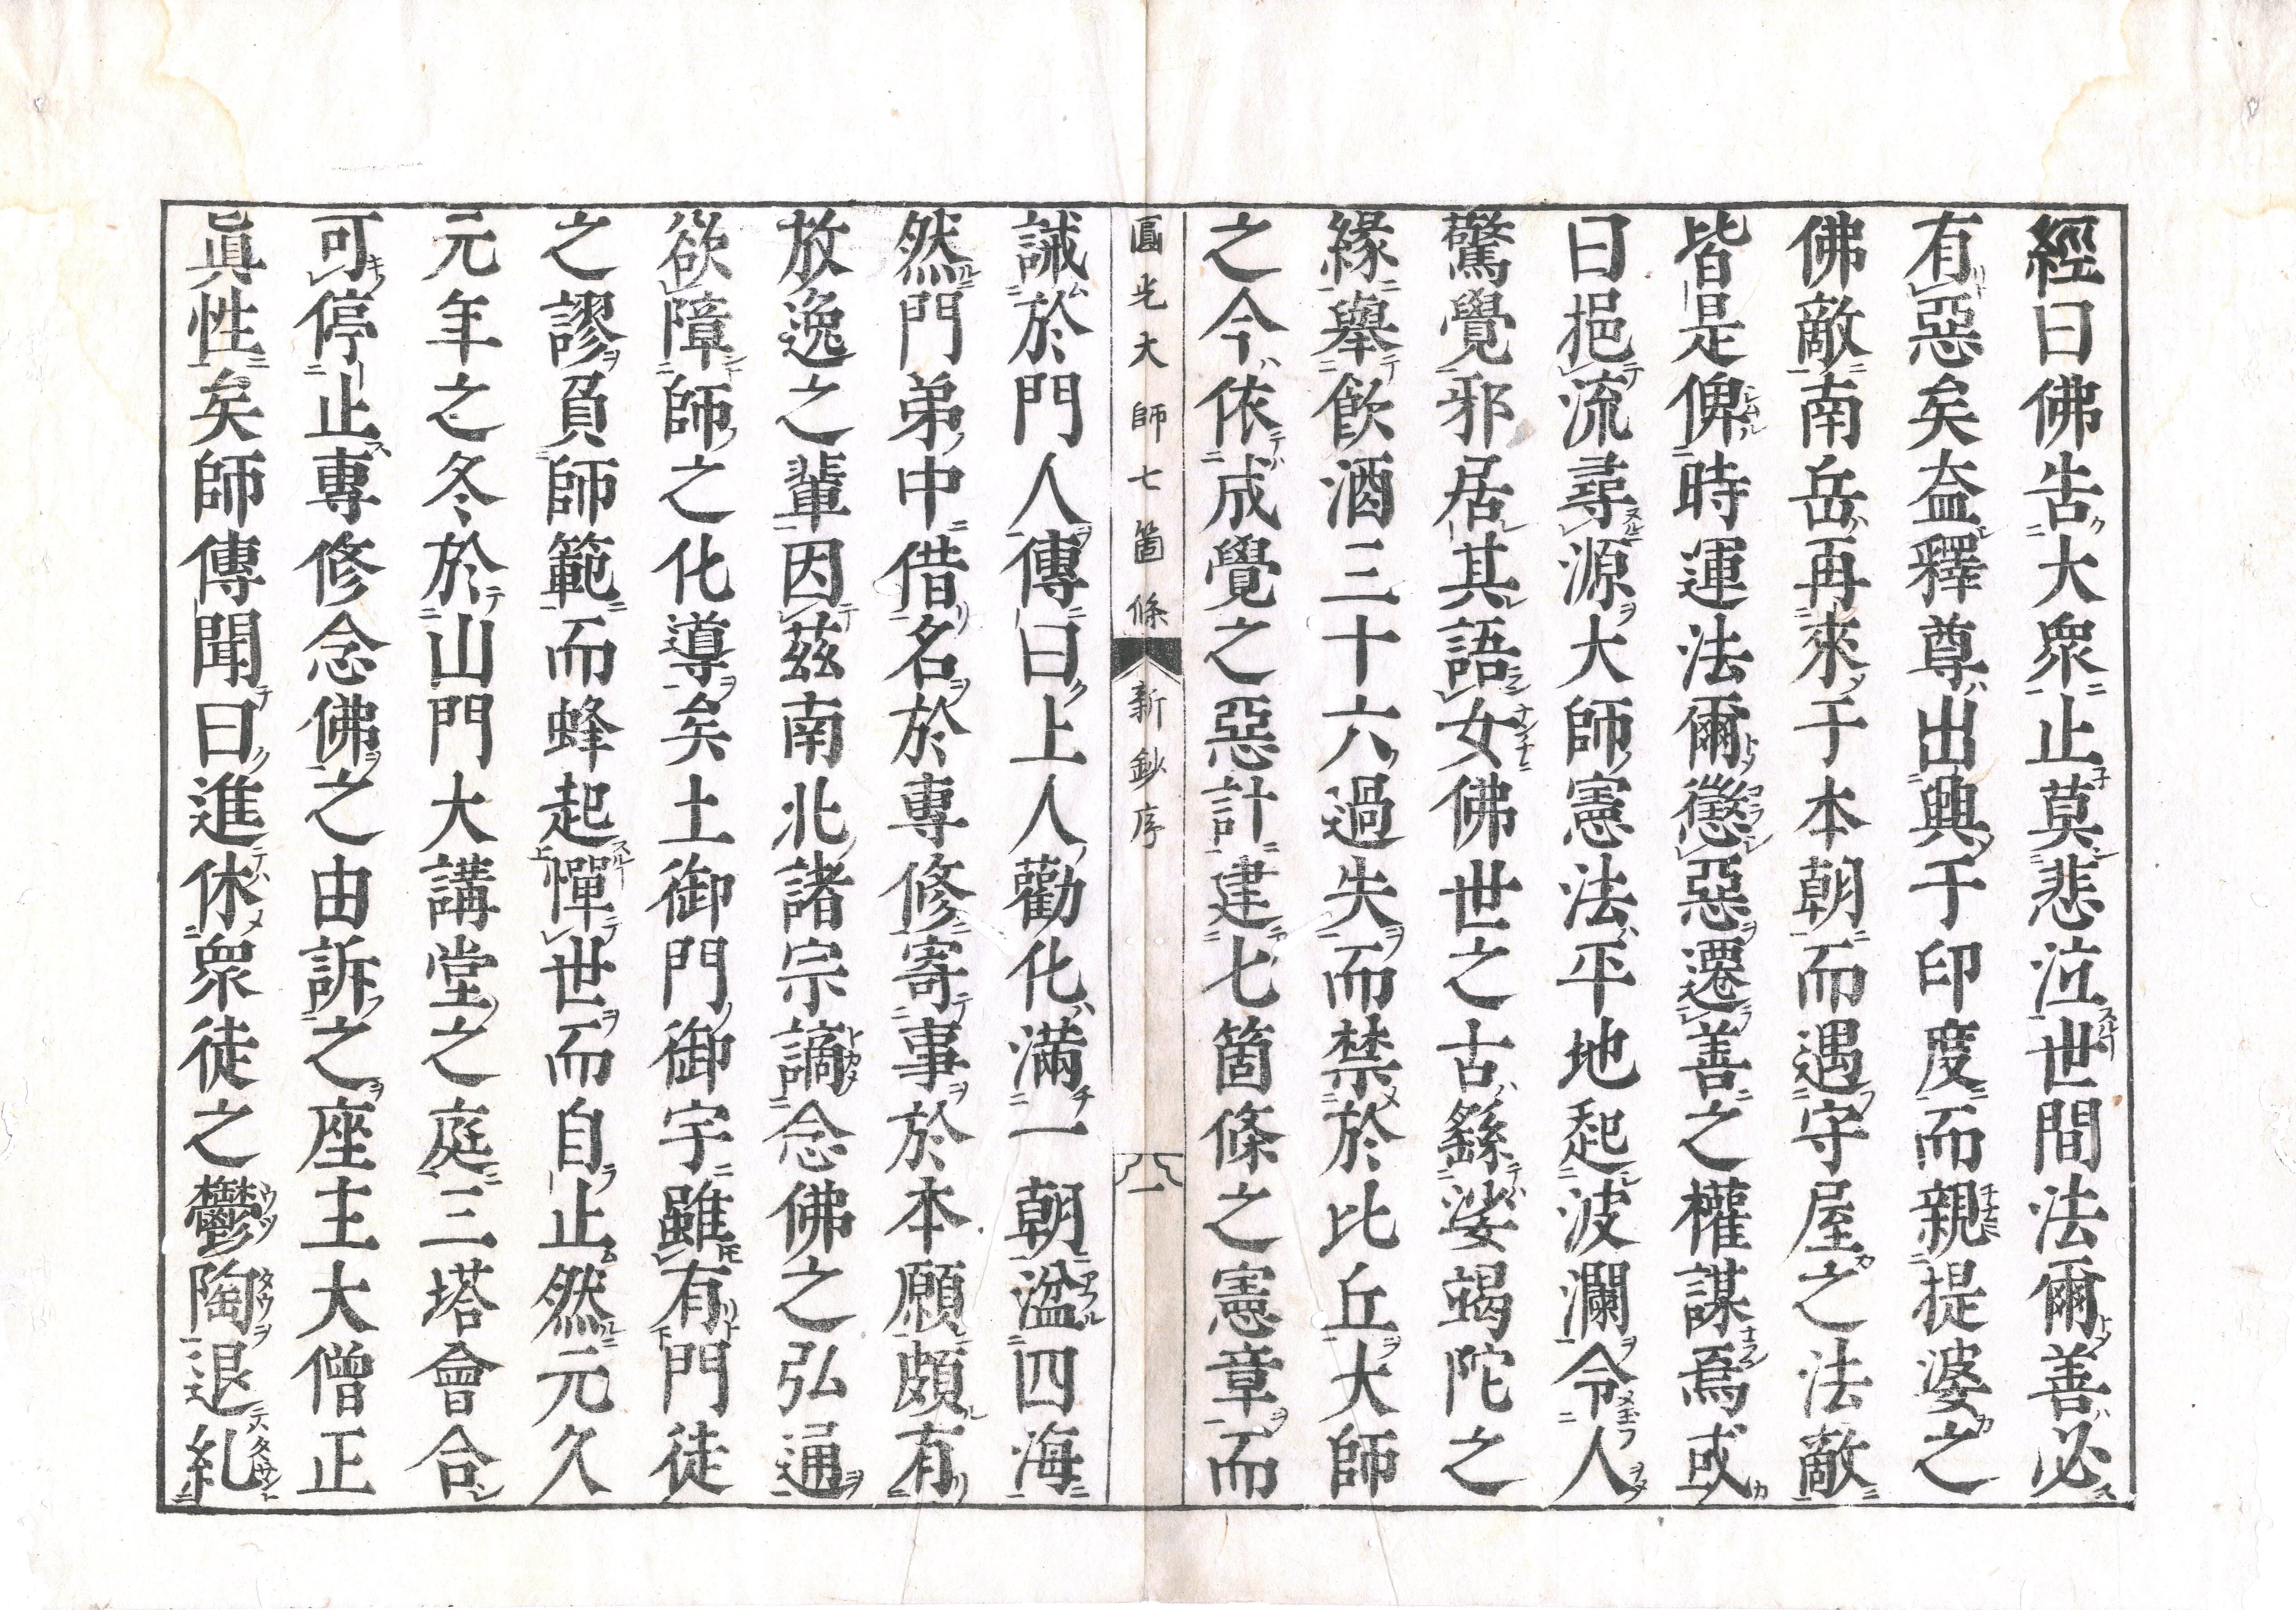 經曰佛告大眾止莫悲泣世間法爾善必
有惡矣盇釋尊出興于印度而親提婆之
佛敵南岳再來于本朝而遇守屋之法敵
皆是俾時運法爾懲惡遷善之權謀焉或
曰挹流尋源大師憲法平地起波瀾令人
驚覺邪居其語女佛世之古繇娑竭陀之
緣舉飲酒三十六過失而禁於比丘大師
之今依成覺之惡計建七箇條之憲章而
圓光大師七箇條 新鈔序 一
誡於門人傳曰上人勸化滿一朝溢四海
然門弟中借名於專修寄事於本願頗有
放逸之輩因茲南北諸宗謫念佛之弘通
欲障師之化導矣土御門御宇雖有門徒
之謬負師範而蜂起憚世而自止然元久
元年之冬於山門大講堂之庭三塔會合
可停止專修念佛之由訴之座主大僧正
眞性矣師傳聞曰進休眾徒之鬱陶退糺